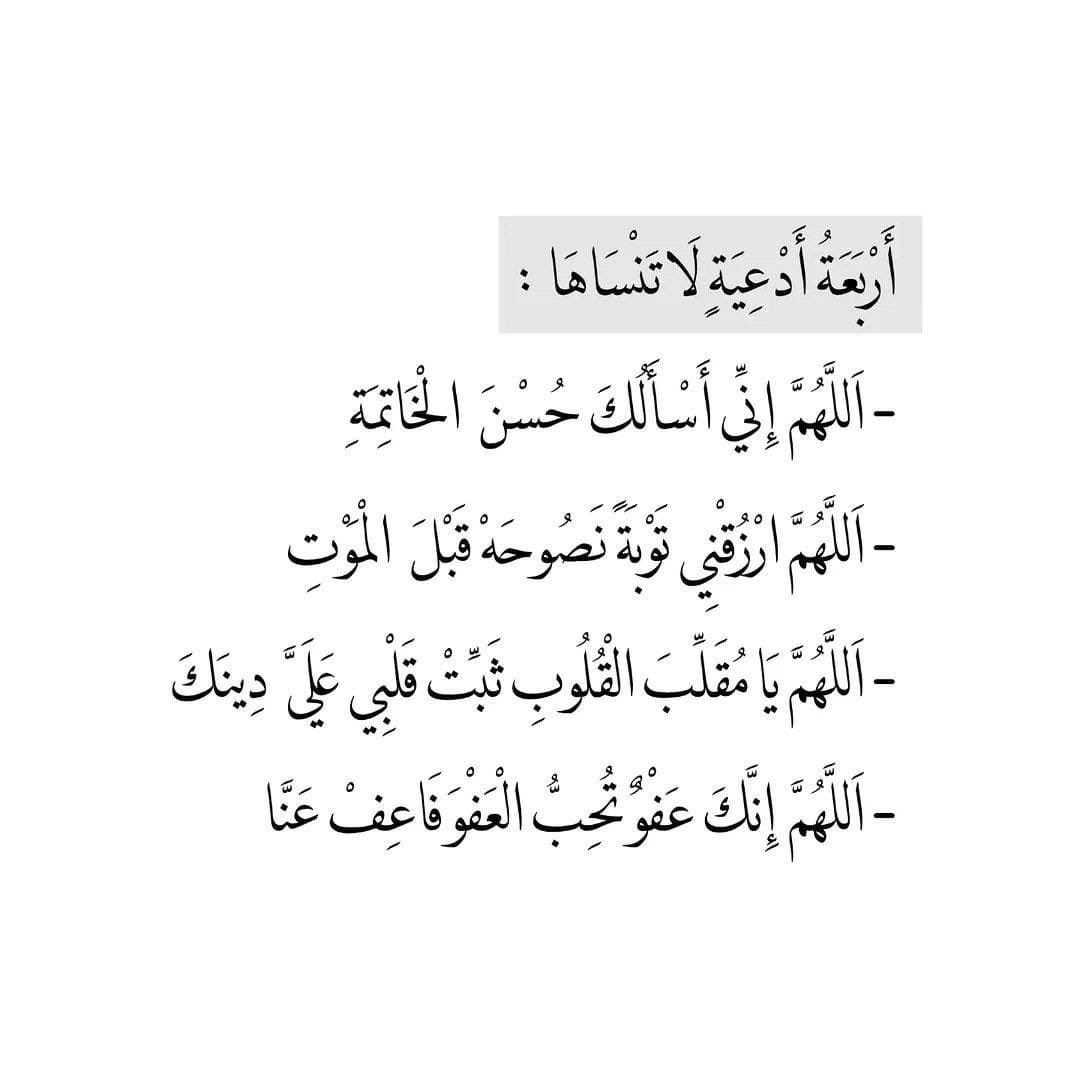 أَرْبَعَةُ أَدْعِيَةٍ لَا تَنْسَاهَا :
- اَللَّهُمَّ إِنِّي أَسْأَلُكَ حُسْنَ الْخَاتِمَةِ
- اَللَّهُمَّ ارْزُقْنِي تَوْبَةً نَصُوحَهْ قَبْلَ الْمَوْتِ
- اَللَّهُمَّ يَا مُقَلِّبَ الْقُلُوبِ ثَبِّتْ قَلْبِي عَلَىَّ دِينَكَ
- اَللَّهُمَّ إِنَّكَ عَفْوٌ تُحِبُّ الْعَفْوَ فَاعِفْ عَنَّا